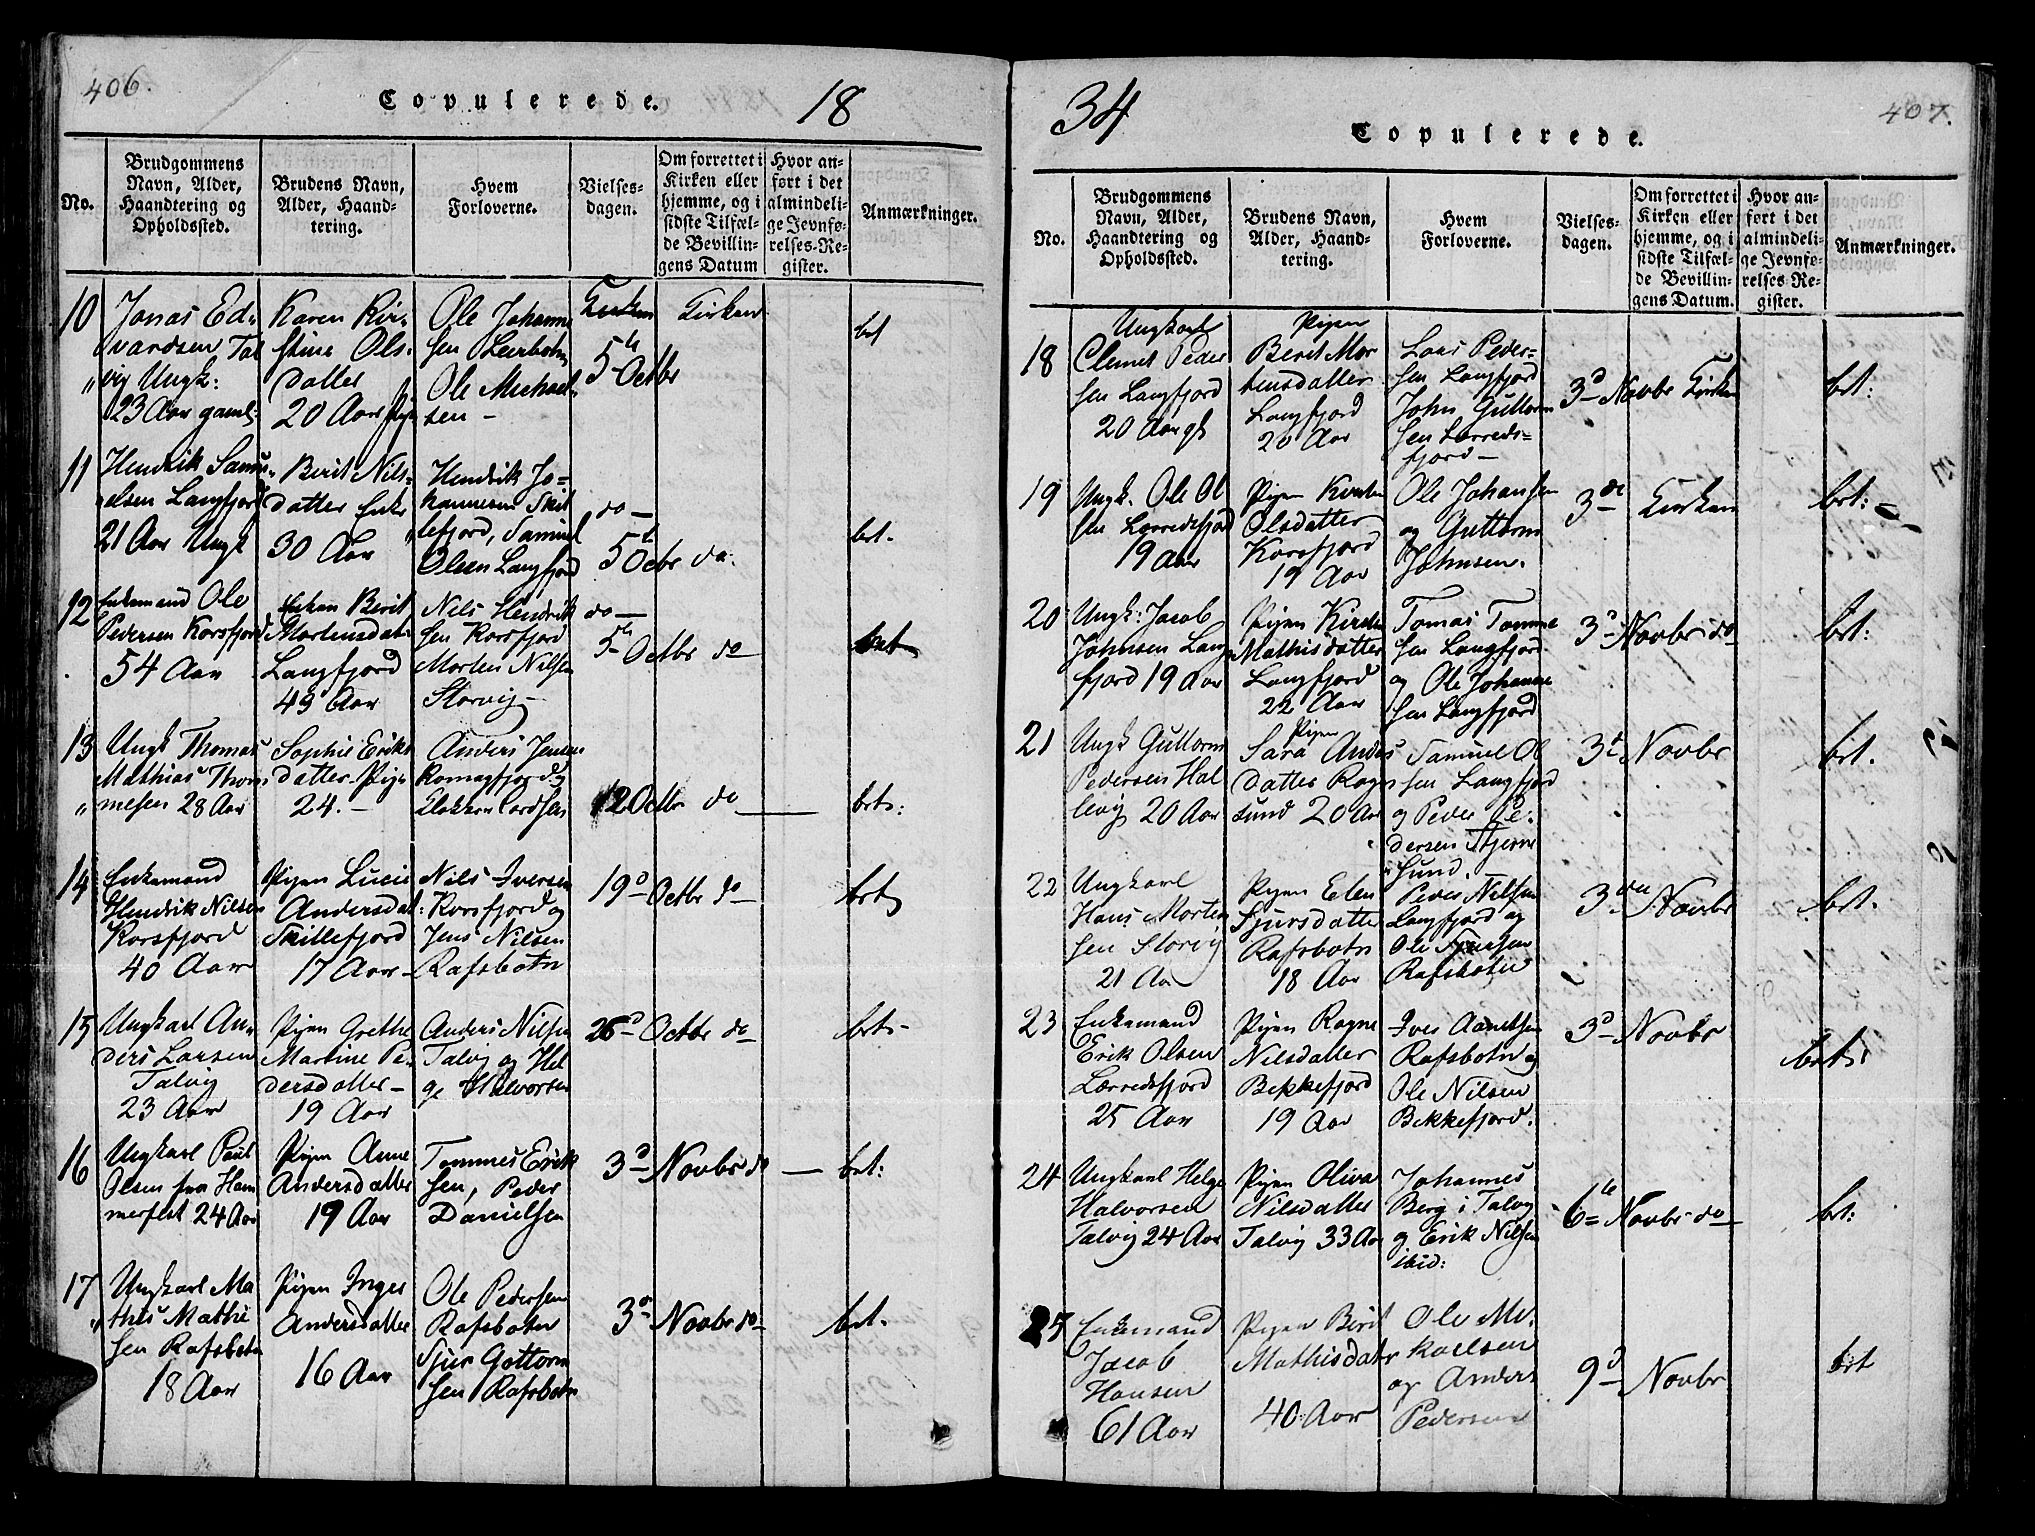 406.
Copulerede.
18
No.
Brudgommens
Navn, Alder,
Haandtering og
Opholdssted.
Brudens Navn,
Alder, Haand-
tering.
Hvem
Forloverne.
Vielses-
dagen.
Om forrettet i
Kirken eller
hjemme, og i
sidste Tilfæl-
de Bevillin-
gens Datum
Hvor an-
ført i det
almindeli-
ge Jevnfø-
relses-Re-
gister.
Anmærkninger.
10
Jonas Ed-
vardsen Tal
vig Ungk:
23 Aar gaml:
Karen Kir-
stine Ols-
datter
20 Aar
Ole Johanne
sen Leerbotn
Ole Michael-
sen -
5te Octbr
Kirken
brt
11
Hendrik Samu-
elsen Langfjord
21 Aar Ungk
Berit Nils-
datter Enke
30 Aar
Hendrik Jo-
hannesen Skil
lefjord, Samuel
Olsen Langfjord
do -
5t Octbr do.
brt.
12
Enkemand Ole
Pedersen Korsfjord
54 Aar
Enken Berit
Mortensdat
Langfjord
49 Aar
Nils Hendrik
sen Korsfjord
Morten Nilsen
Storvig -
do -
5te Octbr do
brt
13
Ungk Thomas
Mathias Thom
mesen 28 Aar
Sophie Eriks
datter Pige
24.-
Anders Jensen
Komagfjord og
12 Octbr do
brt:
14
Enkemand
Hendrik Nilsen
Korsfjord
40 Aar
Pigen Lucie
Andersdat:
Skillefjord
17 Aar -
Nils Iversen
Korsfjord og
Jens Nilsen
Rafsbotn
19d Octbr do
brt
15
Ungkarl An-
ders Larsen
Talvig
23 Aar
Pigen Grethe
Martine Pe-
dersdatter -
19 Aar
Anders Nilsen
Talvig og Hel
ge Halvorsen
26d Octbr do
brt-
16
Ungkarl Poul
Olsen fra Ham
merfest 24 Aar
Pigen Anne
Andersdatter
19 Aar
Tommes Erik
sen, Peder
Danielsen
3d Novbr do
brt:
17
Ungkarl Ma
this Mathi
sen Rafsbotn
18 Aar
Pigen Inger
Andersdatter
16 Aar
Ole Pedersen
Rafsbotn
Sjur Gottorm
sen Rafsbotn
3d Novbr do
brt.
34
Copulerede.
407.
No.
Brudgommens
Navn, Alder,
Haandtering og
Opholdssted.
Brudens Navn,
Alder, Haand-
tering.
Hvem
Forloverne.
Vielses-
dagen.
Om forrettet i
Kirken eller
hjemme, og i
sidste Tilfæl-
de Bevillin-
gens Datum.
Hvor an-
ført i det
almindeli-
ge Jevnfø-
relses-Re-
gister.
Anmærkninger.
18
Ungkarl
Clemet Peder
sen Langfjord
20 Aar gl
Pigen
Berit Mor
tensdatter
Langfjord
20 Aar
Lars Peder-
sen Langfjord
John Guttorm
sen Lerreds-
fjord -
3d Novbr Kirken
brt:
19
Ungk. Ole Ol
sen Lerredsfjord
19 Aar
Pigen Kirsten
Olsdatter
Korsfjord
19 Aar
Ole Johansen
og Guttorm
Johnsen.
3de
Kirken
brt:
20
Ungk: Jacob
Johnsen Lang
fjord 19 Aar
Pigen Kirsten
Mathisdatter
Langfjord
22 Aar
Tomas Tomme
sen Langfjord
og Ole Johanne
sen Langfjord
3d Novbr do
brt:
21
Ungk Guttorm
Pedersen Hal
levig 20 Aar
Pigen
Sara Anders
datter Rogn
sund 20 Aar
Samuel Ol
sen Langfjord
og Peder Pe-
dersen Stjern
sund.
3d Novbr
brt.
22
Ungkarl
Hans Morten
sen Storvig
21 Aar
Pigen Elen
Sjursdatter
Rafsbotn
18 Aar
Peder Nilsen
Langfjord og
Ole Sjursen
Rafsbotn
3die Novbr
brt.
23
Enkemand
Erik Olsen
Lærredsfjord
25 Aar
Pigen Ragne
Nilsdatter
Bekkefjord
19 Aar
Iver Aanetsen
Rafsbotn og
Ole Nilsen
Bekkefjord.
3d Novbr
brt.
24
Ungkarl Helge
Halvorsen
Talvig 24 Aar
Pigen Oliva
Nilsdatter
Talvig 33 Aar
Johannes
Berg i Talvig
og Erik Nilsen
ibid:
6te Novbr do
brt:
25
Enkemand
Jacob
Hansen
61 Aar
Pigen Berit
Mathisdatr
40 Aar
Ole Mi-
kaelsen
og Anders
Pedersen
9d Novbr
brt